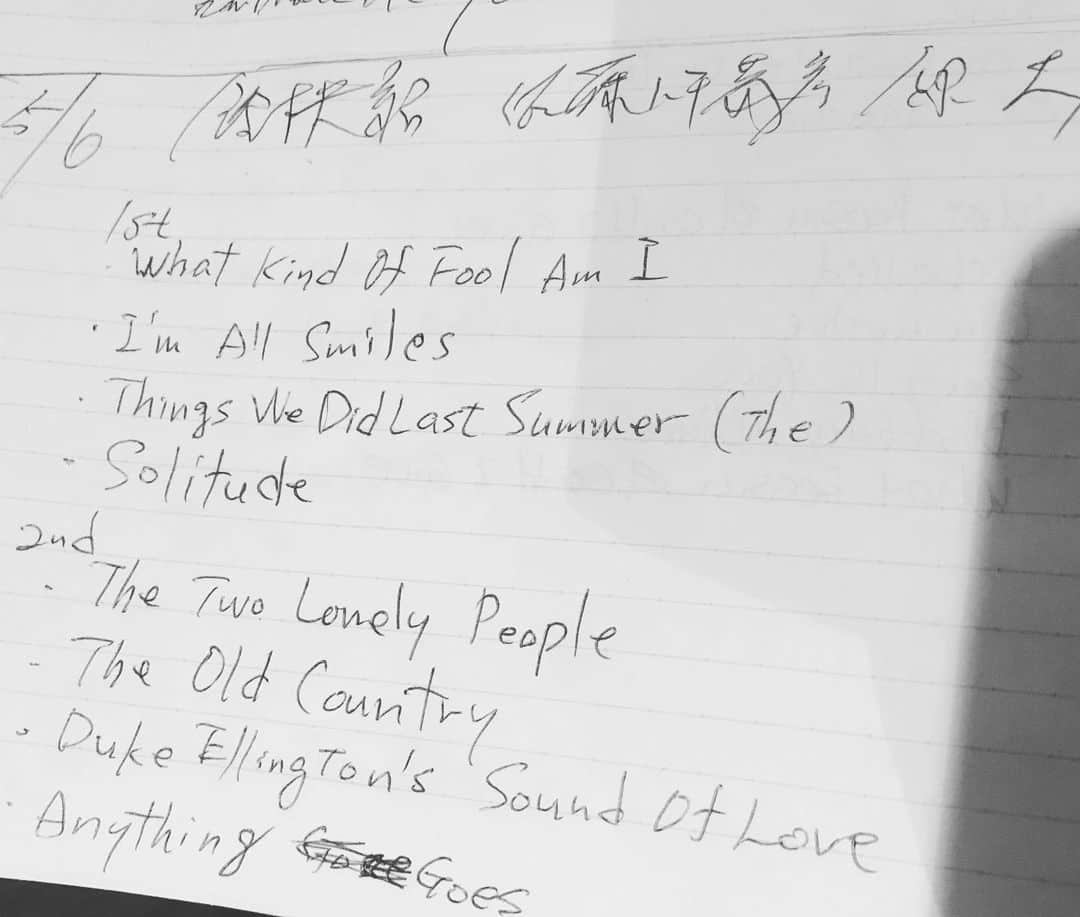 5/6
1st
· What Kind Of Fool Am I
· I'm All Smiles
· Things We Did Last Summer (The)
· Solitude
2nd
· The Two Lonely People
· The Old Country
· Duke Ellington's Sound Of Love
· Anything Goes